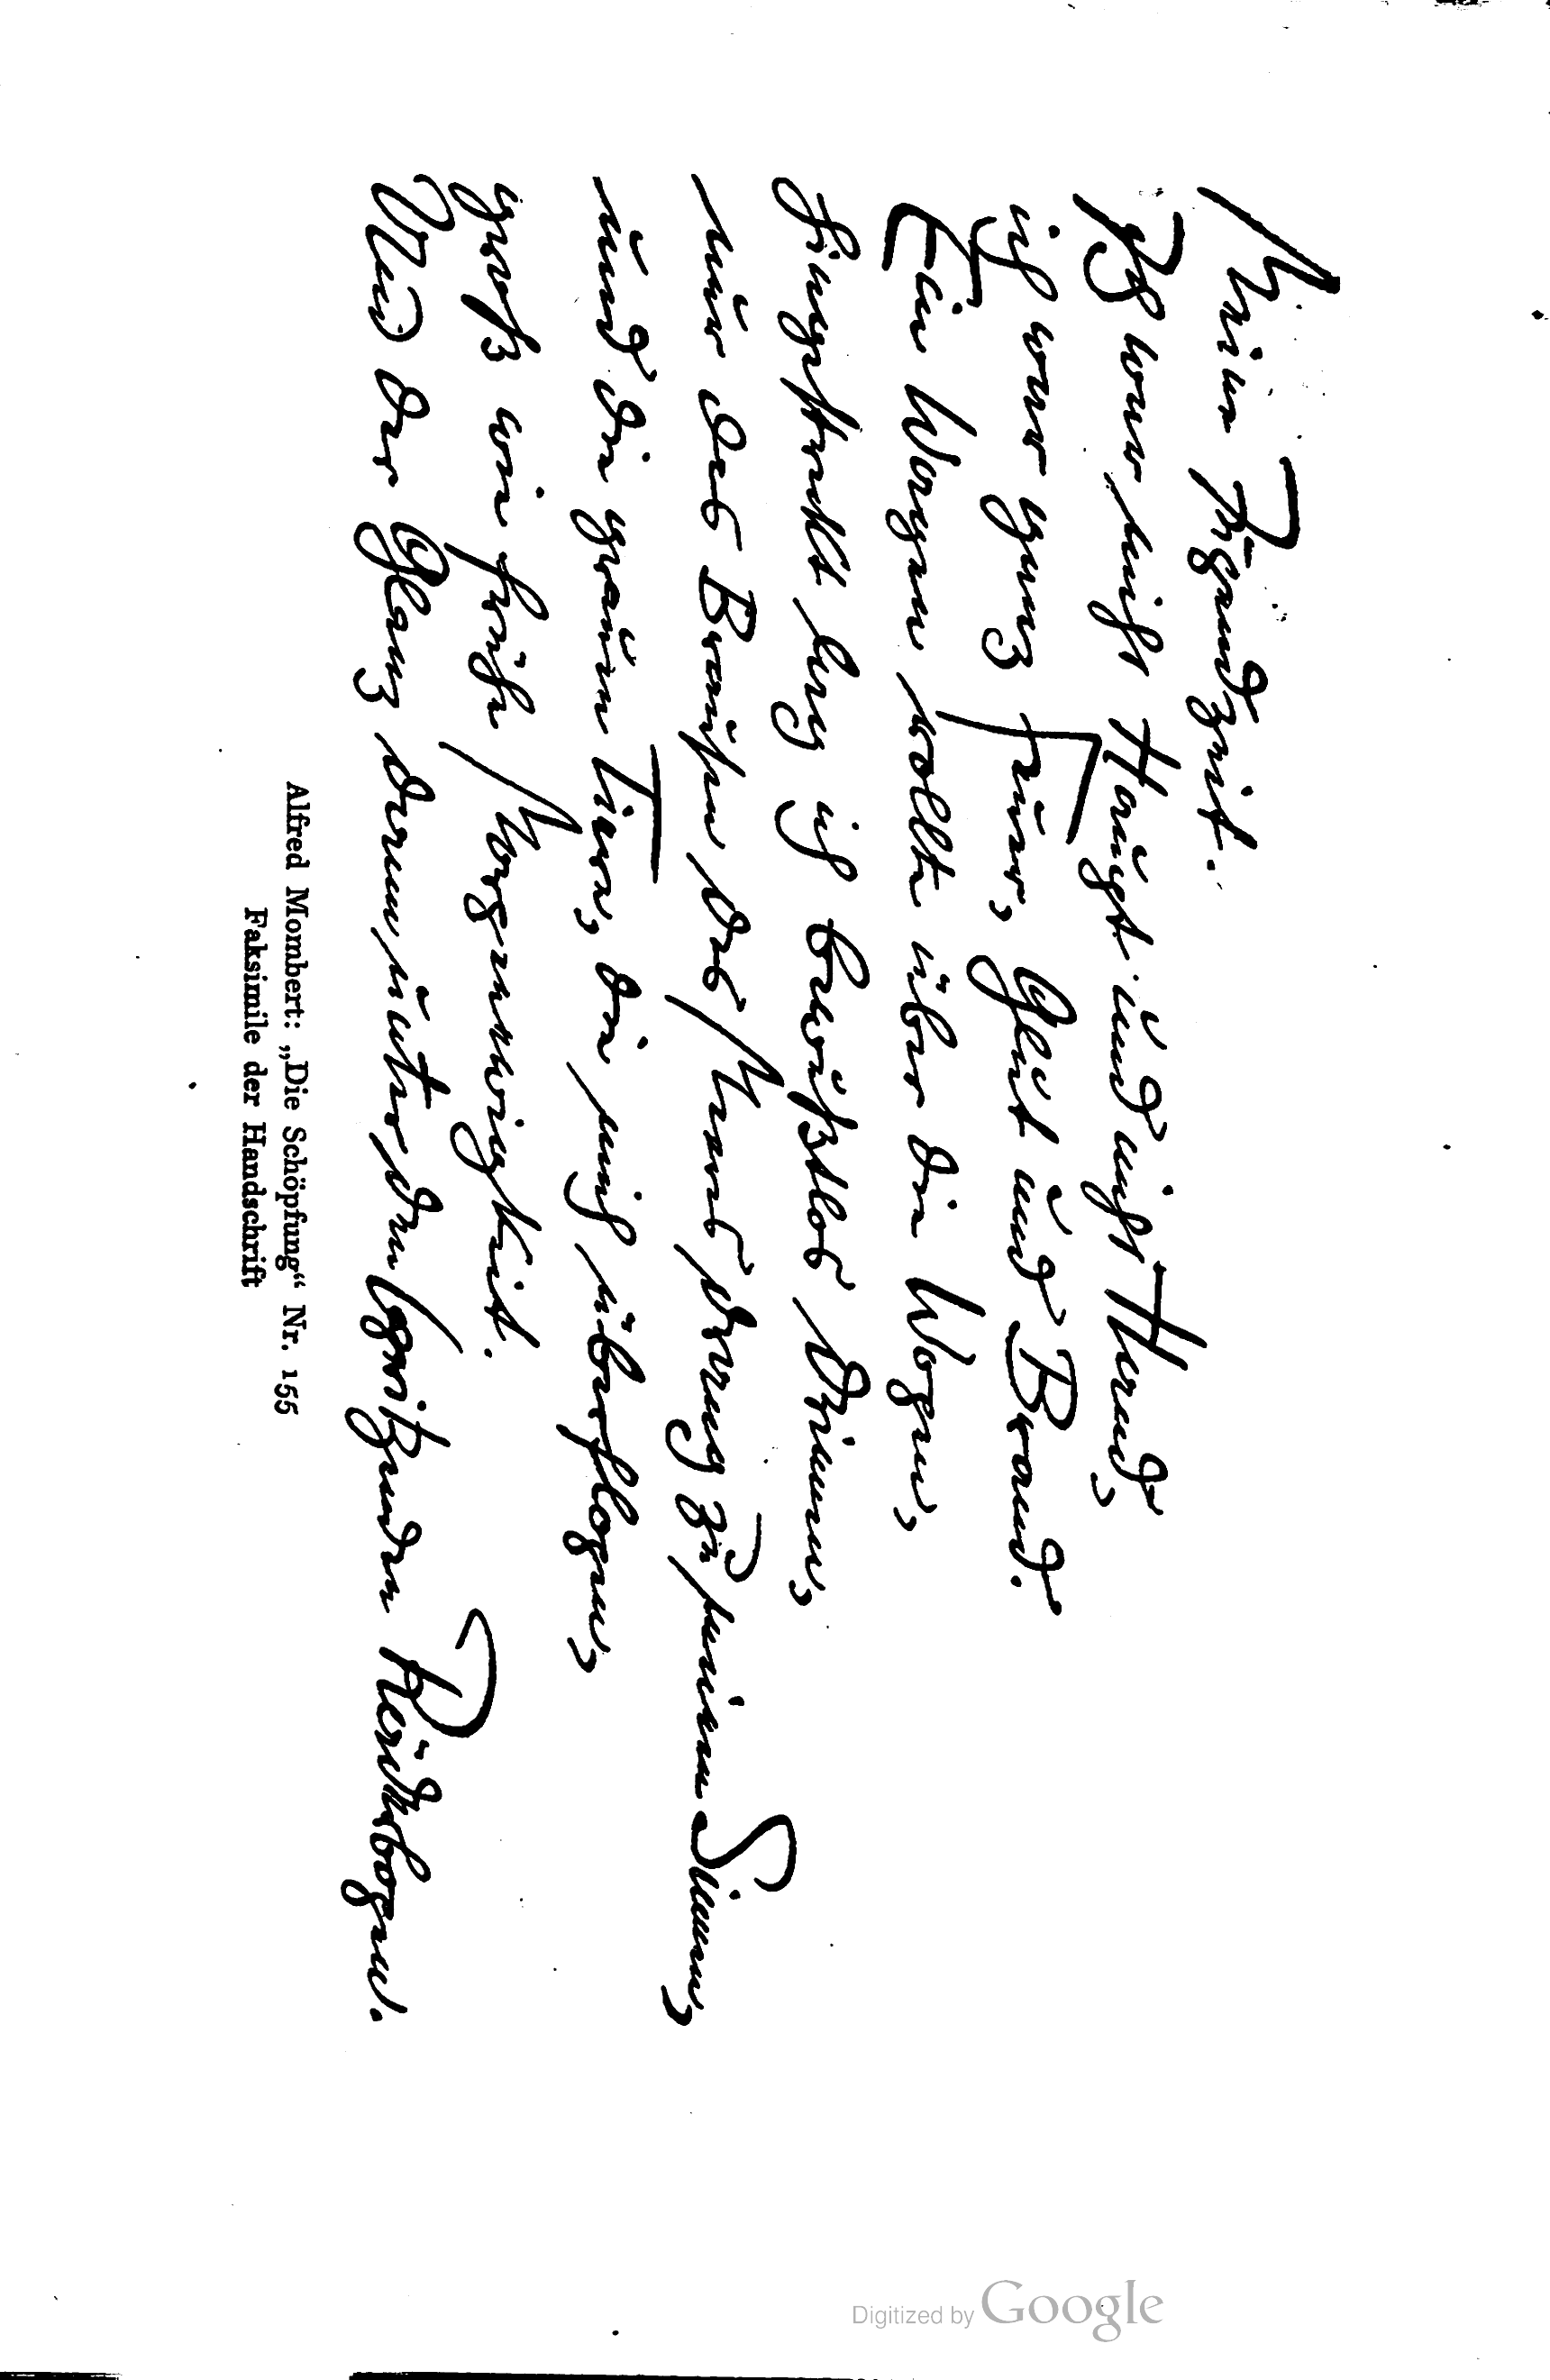 Meine Jugendzeit.
Ich war nicht Haupt und nicht Hand,
ich war ganz Feuer, Glut und Brand.
Ein Wogen rollte über die Wogen,
hingestreckt lag ich bewußtlos drinnen,
nur das Brausen des Meeres drang zu meinen Sinnen,
und die grauen Tiere, die mich überflogen,
groß wie frühe Morgenewigkeit.
Und der Glanz darunter dem spritzenden Reiterbogen.
Alfred Mombert: „Die Schöpfung“ Nr. 155
Faksimile der Handschrift
Digitized by Google